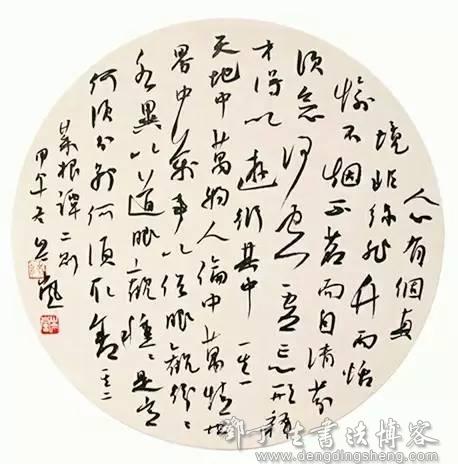 人心有個真
境非絲非竹而恬
愉不烟不茗而自清芬
須念净境空慮忘形釋
才得以遊衍其中 其一
天地中萬物人倫中萬情世
界中萬事以俗眼觀紛〻
各異以道眼觀種〻是常
何須分別何須取舍 其二
菜根譚二則
甲午冬
鄧丁生書法博客
www.dengdingsheng.com